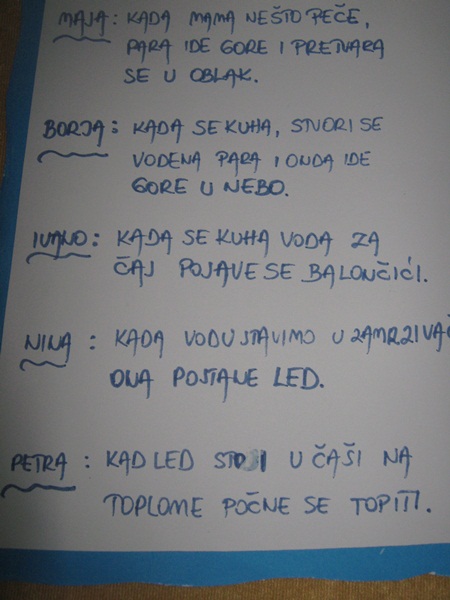 MAJA: KADA MAMA NEŠTO PEČE,
PARA IDE GORE I PRETVARA
SE U OBLAK.
BORJA: KADA SE KUHA, STVORI SE
VODENA PARA I ONDA IDE
GORE U NEBO.
IVANO: KADA SE KUHA VODA ZA
ČAJ POJAVE SE BALONČIĆI.
NINA: KADA VODU STAVIMO U ZAMRZIVAČ
ONA POSTANE LED.
PETRA: KAD LED STOJI U ČAŠI NA
TOPLOME POČNE SE TOPITI.